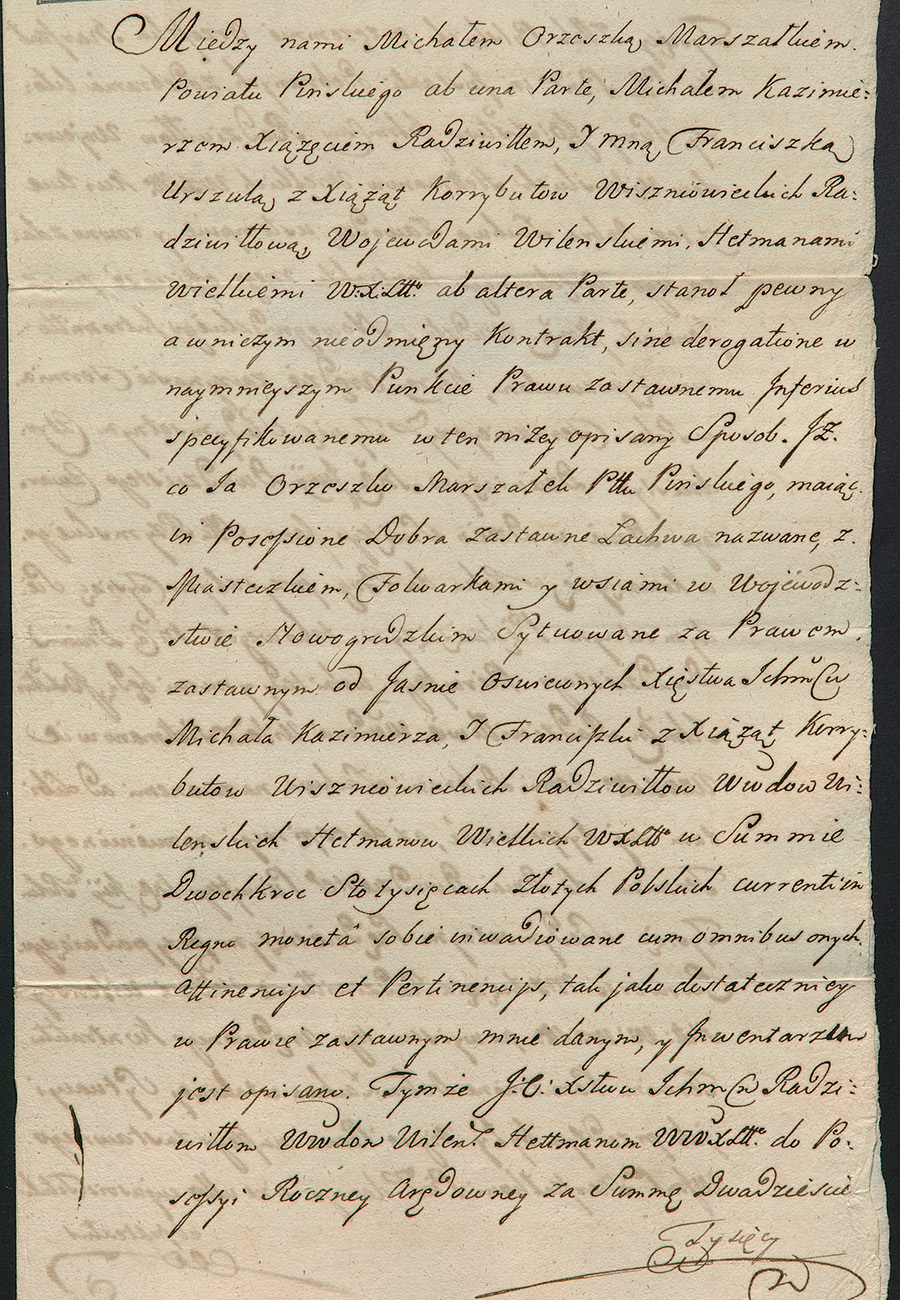 Między nami Michałem Orzeszką Marszałkiem
Powiatu Pińskiego ab una Parte, Michałem Kazimie:
rzem Xiążęciem Radziwiłłem, I mną Franciszką
Urszulą z Xiążąt Korrybutow Wiszniowieckich Ra:
dziwiłłową, Wojewodami Wilenskiemi, Hetmanami
Wielkiemi W.X.Litt° ab altera Parte, stanoł pewny
a wniczym nieodmięny Kontrakt, sine derogatione w
naymnieyszym Punkcie Prawu zastawnemu Inferius
specyfikowanemu w ten niżey opisany Sposob. Iż.
co Ia Orzeszko Marszałek Pttu Pińskiego, maiąc
in Possessione Dobra Zastawne Lachwa nazwane, z
Miasteczkiem, Folwarkami y wsiami w Wojewodz:
stwie Nowogrodzkim Sytuowane za Prawem
zastawnym od Jasnie Oswieconych Xięstwa Ichm
Michała Kazimierza, I Franciszki z Xiążąt Korry:
butow Wiszniowieckich Radziwiłłow Wwdow Wi:
lenskich Hetmanow Wielkich WXLitt° w Summie
Dwochkroc Stotysięcach Złotych Polskich currenti in
Regno monetâ sobie inwadiowane cum omnibus onych
Attinencijs et Pertinencijs, tak jako dostateczniey
w Prawie zastawnym mnie danym, y Inwentarzem
jest opisano. Tymże J.O. Xstwu Ichm Radzi:
wiłłom Wwdom Wilen Hettmanom WWXLitt° do Po:
sessyi Roczney Arędowney za Summę Dwadzieście
Tysięcy